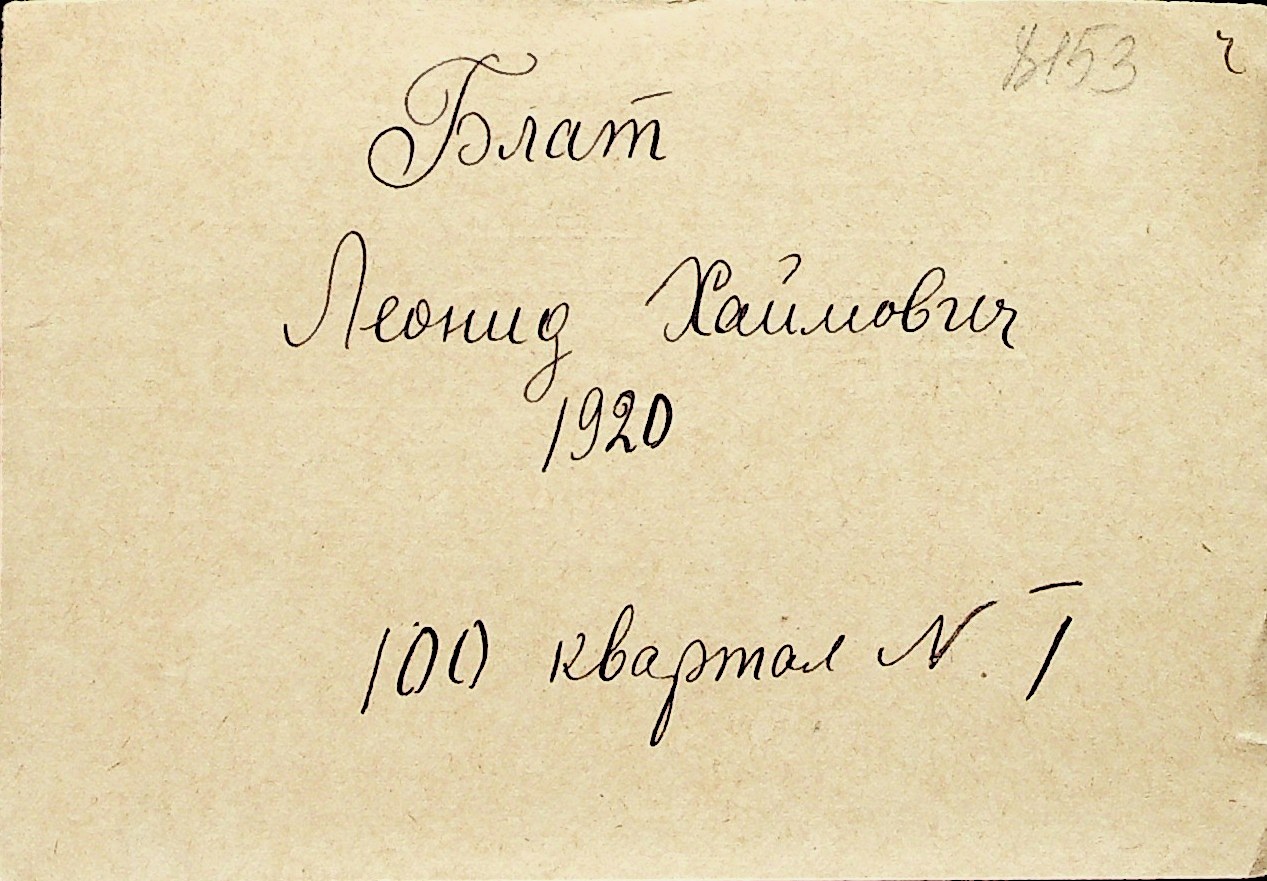 8153
Блат
Леонид Хаймович
1920
100 квартал N 7